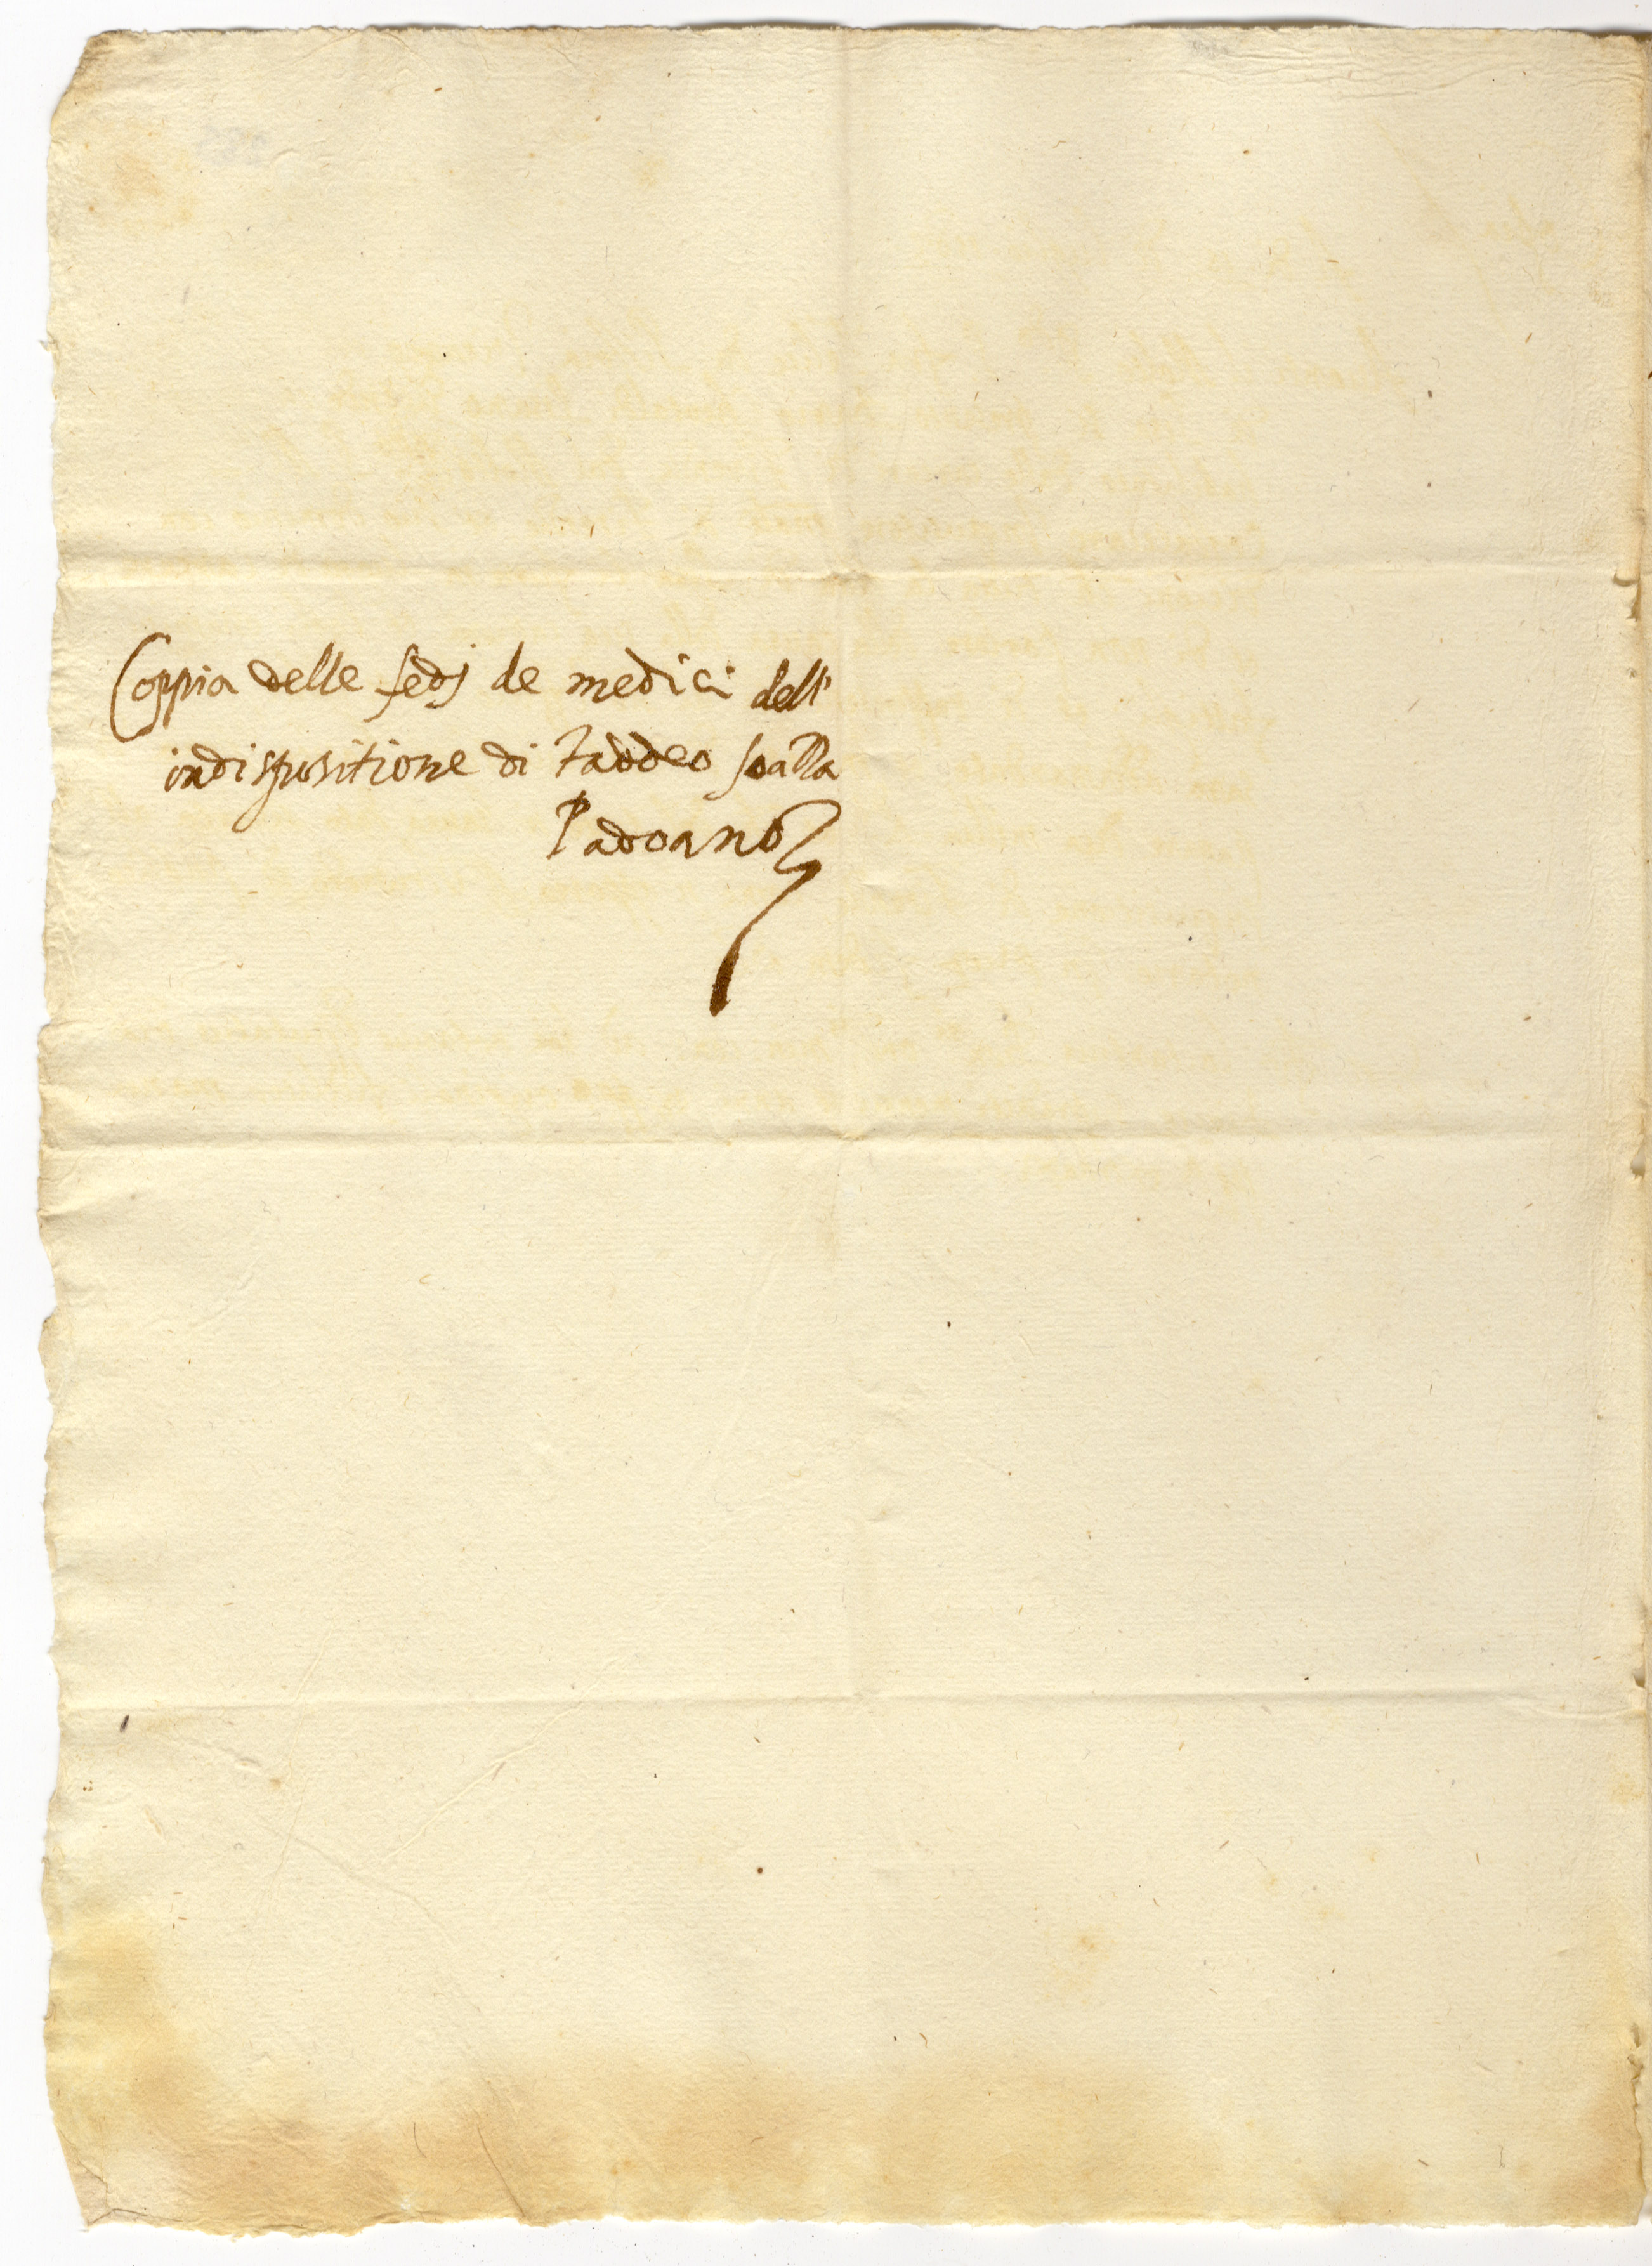 Coppia delle fedj de medici dell'
indispositione di Taddeo spalla
Padoano